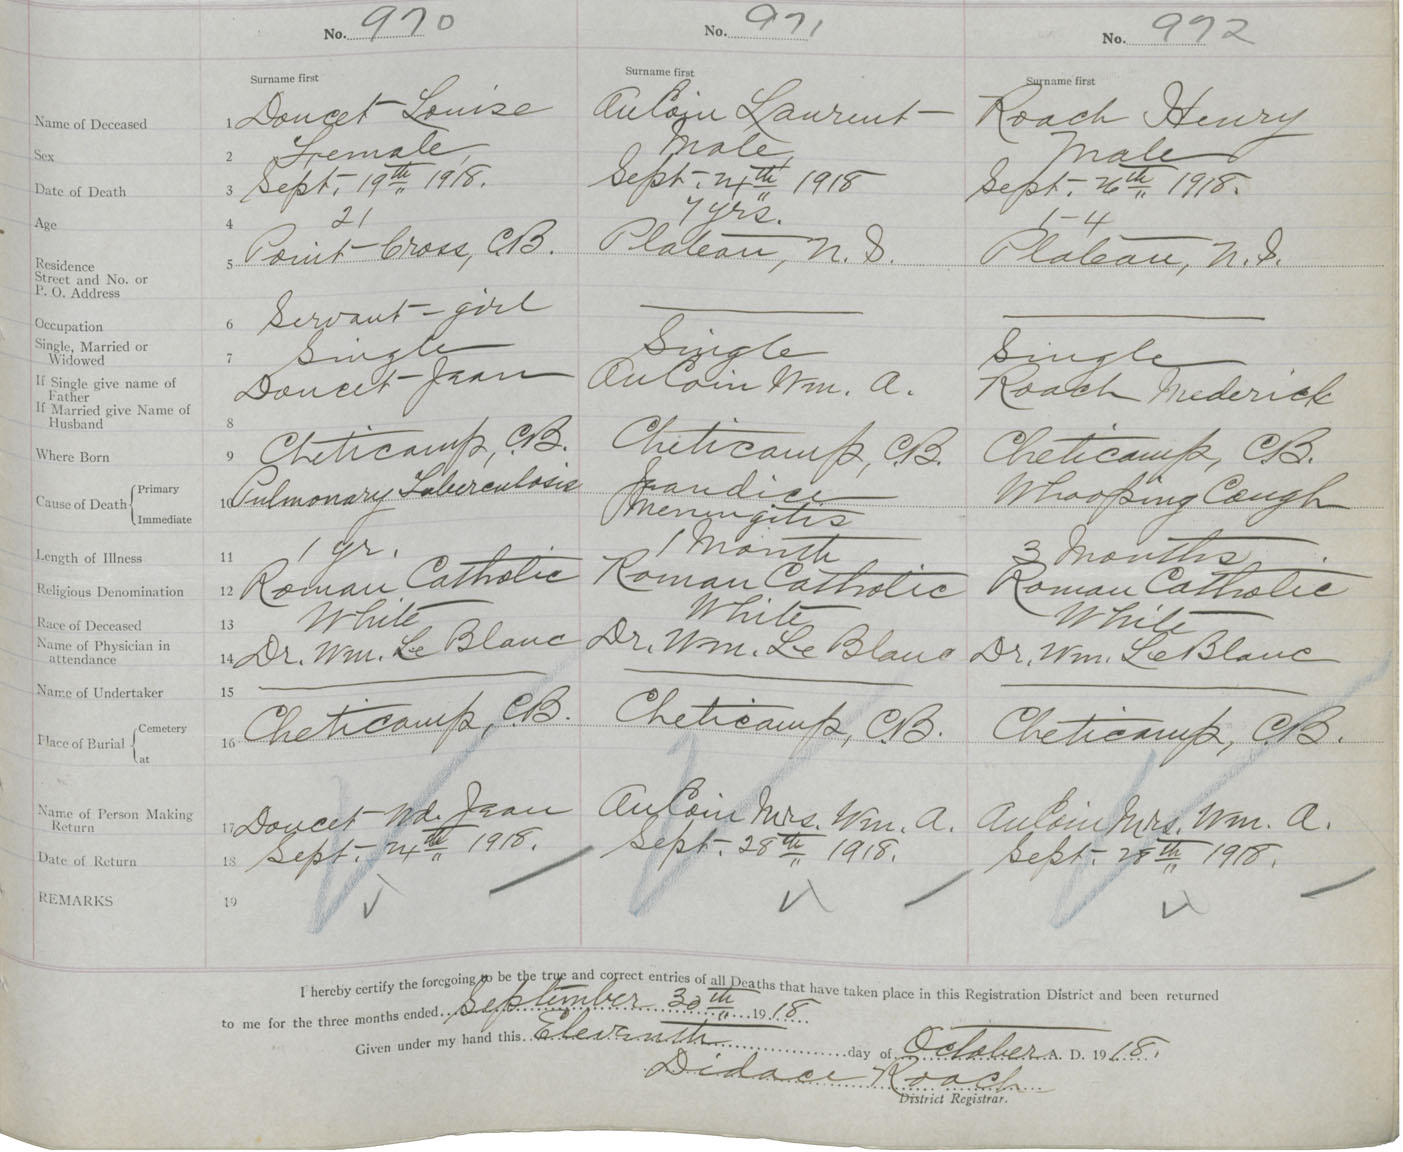 No. 970 No. 971 No. 972
Surname first Surname first Surname first
Name of Deceased 1 Doucet Louise AuCoin Laurent Roach Henry
Sex 2 Female Male Male
Date of Death 3 Sept. 19th 1918. Sept. 24th 1918 Sept. 26th 1918.
Age 4 21 7 yrs. 1-4
Residence
Street and No. or
P. O. Address 5 Point Cross, C.B. Plateau, N.S. Plateau, N.S.
Occupation 6 Servant-girl
Single, Married or
Widowed 7 Single Single Single
If Single give name of
Father
If Married give Name of
Husband 8 Doucet Jean AuCoin Wm. A. Roach Mederick
Where Born 9 Cheticamp, C.B. Cheticamp, C.B. Cheticamp, C.B.
Cause of Death Primary
Immediate 10 Pulmonary Tuberculosis Jaundice Meningitis Whooping Cough
Length of Illness 11 1 yr. 1 Month 3 Months
Religious Denomination 12 Roman Catholic Roman Catholic Roman Catholic
Race of Deceased 13 White White White
Name of Physician in
attendance 14 Dr. Wm. Le Blanc Dr. Wm. Le Blanc Dr. Wm. Le Blanc
Name of Undertaker 15
Place of Burial Cemetery
at 16 Cheticamp, C.B. Cheticamp, C.B. Cheticamp, C.B.
Name of Person Making
Return 17 Doucet Wd. Jean AuCoin Mrs. Wm. A. AuCoin Mrs. Wm. A.
Date of Return 18 Sept. 24th 1918. Sept. 28th 1918. Sept. 28th 1918.
REMARKS 19
I hereby certify the foregoing to be the true and correct entries of all Deaths that have taken place in this Registration District and been returned
to me for the three months ended September 30th 1918
Given under my hand this Eleventh day of October A. D. 1918.
Didace Roach
District Registrar.